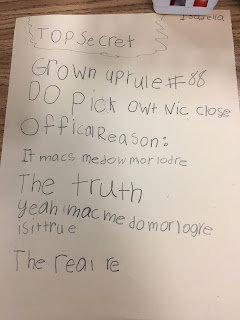 Isabella
TOP Secret
Grown up rule #88
DO Pick Owt Nic close
Offical Reason:
It macs me dow mor lodre
The truth
yeah imac me do mor logre
isit true
The real re